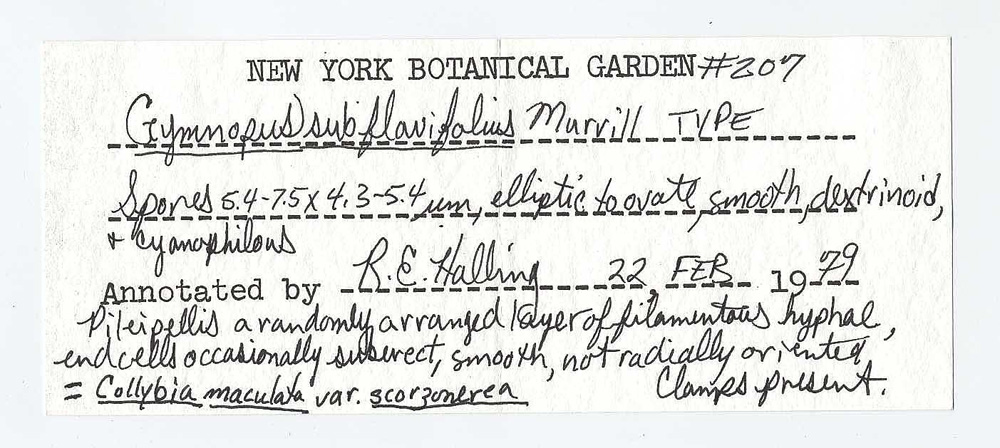 NEW YORK BOTANICAL GARDEN #207
Gymnopus subflavifolius Murrill TYPE
Spores 5.4-7.5 x 4.3-5.4 µm, elliptic to ovate, smooth, dextrinoid,
+ cyanophilous
Annotated by R.E. Halling 22, FEB 1979
Pileipellis a randomly arranged layer of filamentous hyphae,
endcells occasionally suberect, smooth, not radially oriented,
Clamps present.
= Collybia maculata var. scorzonerea